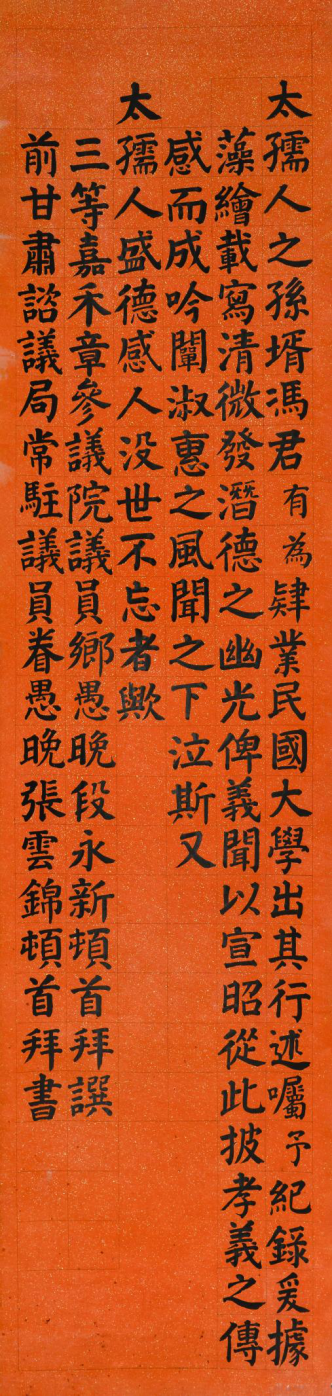 太孺人之孫壻馮君有為肄業民國大學出其行述囑予紀錄爰據
藻繪載寫清微發潛德之幽光俾義聞以宣昭從此披孝義之傳
感而成吟闡淑惠之風聞之下泣斯又
太孺人盛德感人没世不忘者歟
三等嘉禾章參議院議員鄉愚晚段永新頓首拜譔
前甘肅諮議局常駐議員眷愚晚張雲錦頓首拜書